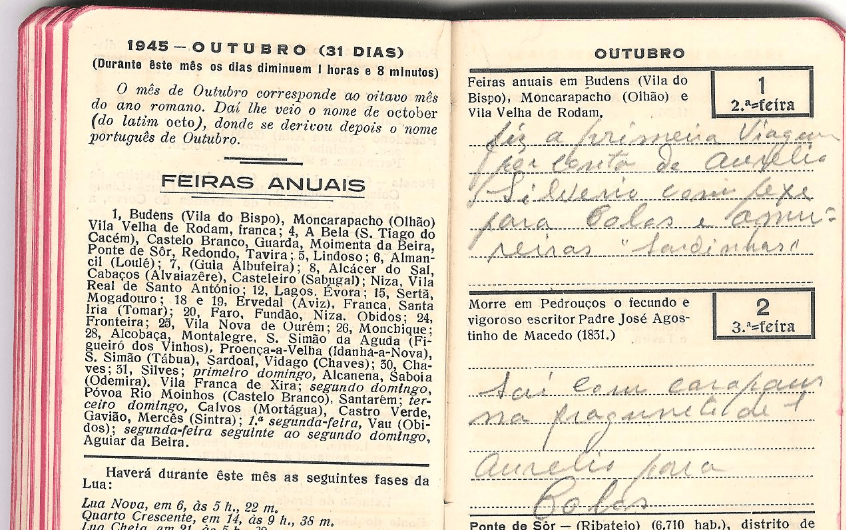 1945 — OUTUBRO (31 DIAS)
(Durante êste mês os dias diminuem 1 horas e 8 minutos)
O mês de Outubro corresponde ao oitavo mês
do ano romano. Daí lhe veio o nome de october
(do latim octo), donde se derivou depois o nome
português de Outubro.
FEIRAS ANUAIS
1, Budens (Vila do Bispo), Moncarapacho (Olhão)
Vila Velha de Rodam, franca; 4, A Bela (S. Tiago do
Cacém), Castelo Branco, Guarda, Moimenta da Beira,
Ponte de Sôr, Redondo, Tavira; 5, Lindoso; 6, Alman-
cil (Loulé); 7, (Guia Albufeira); 8, Alcácer do Sal,
Cabaços (Alvaiazêre), Casteleiro (Sabugal); Niza, Vila
Real de Santo António; 12, Lagos, Évora; 15, Sertã,
Mogadouro; 18 e 19, Ervedal (Aviz), Franca, Santa
Iria (Tomar); 20, Faro, Fundão, Niza, Obidos; 24,
Fronteira; 25, Vila Nova de Ourém; 26, Monchique;
28, Alcobaça, Montalegre, S. Simão da Aguda (Fi-
gueiró dos Vinhos), Proença-a-Velha (Idanha-a-Nova),
S. Simão (Tábua), Sardoal, Vidago (Chaves); 30, Cha-
ves; 31, Silves; primeiro domingo, Alcanena, Saboia
(Odemira), Vila Franca de Xira; segundo domingo,
Póvoa Rio Moinhos (Castelo Branco), Santarém; ter-
ceiro domingo, Calvos (Mortágua), Castro Verde,
Gavião, Mercês (Sintra); 1.ª segunda-feira, Vau (Obi-
dos); segunda-feira seguinte ao segundo domingo,
Aguiar da Beira.
Haverá durante êste mês as seguintes fases da
Lua:
Lua Nova, em 6, às 5 h., 22 m.
Quarto Crescente, em 14, às 9 h., 38 m.
Lua Cheia, em 21, às 5 h.,
OUTUBRO
Feiras anuais em Budens (Vila do
Bispo), Moncarapacho (Olhão) e
Vila Velha de Rodam,
1
2.ª=feira
fiz a primeira Viagem
por conta de Aurelio
Silverio com pexe
para Colos e amu-
reiras "Sardinhas"
Morre em Pedrouços o fecundo e
vigoroso escritor Padre José Agos-
tinho de Macedo (1831.)
2
3.ª=feira
Sai com carapaus
na fragunete de
Aurelio para
Colos
Ponte de Sôr — (Ribatejo) (6.710 hab.), distrito de